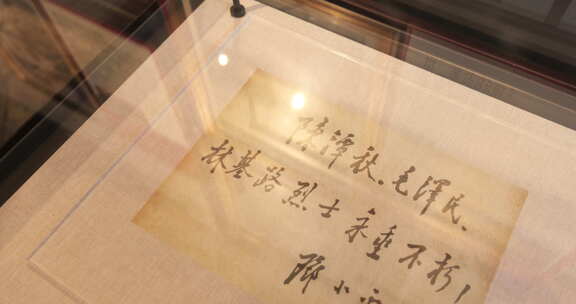 陳潭秋、毛澤民、
林基路烈士永垂不朽！
鄧小